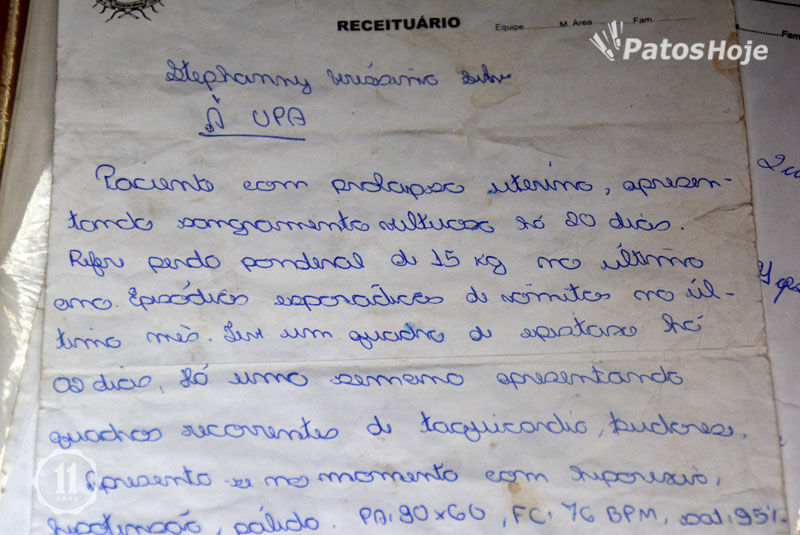 RECEITUÁRIO
Equipe M. Área Fam.
Fam
PatosHoje
Stephanny Silva
À UPA
Paciente com prolapso uterino, apresen-
tando sangramento vultuoso há 20 dias.
Refere perda ponderal de 15 kg no último
ano. Episódios esporádicos de vômitos no úl-
timo mês. Teve um quadro de epistaxe há
02 dias, há uma semana apresentando
quadros recorrentes de taquicardia, sudorese.
Apresenta-se no momento com hiporexia,
hipotensão, pálida. PA: 90x60, FC: 76 BPM, sat: 95%
11
ANOS